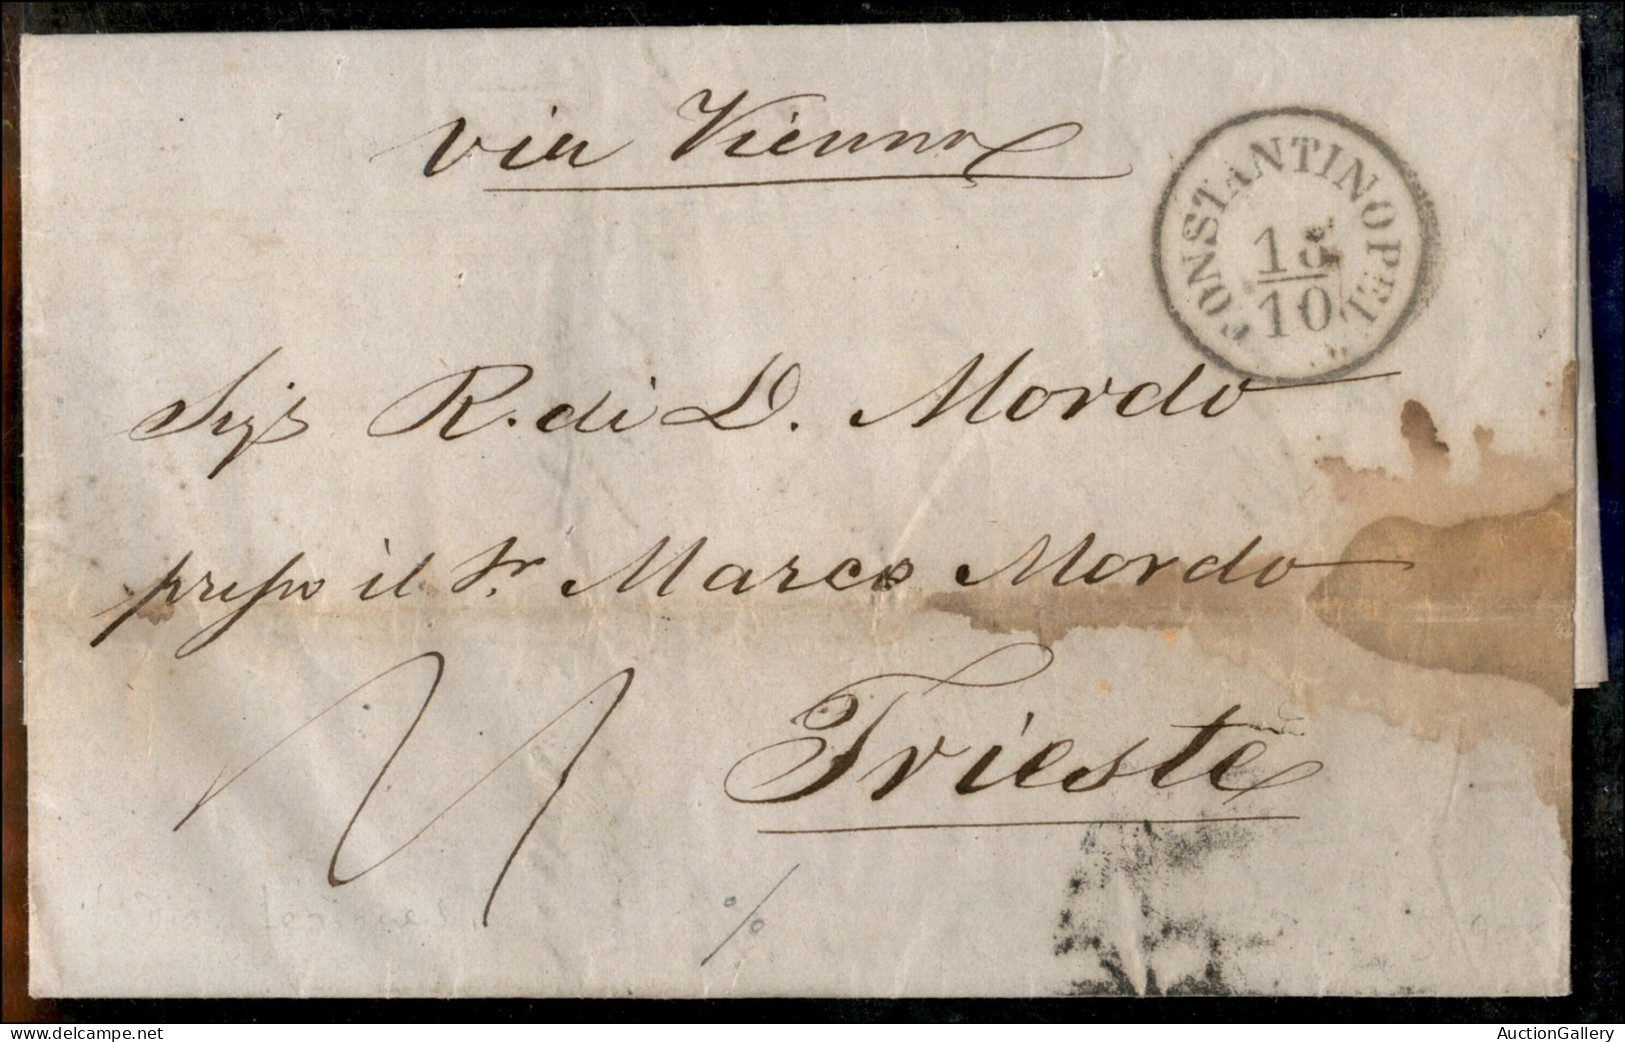 via Vienna
CONSTANTINOPEL
10
Sigr R. di D. Mordo
presso il Sr Marco Mordo
Trieste
%
AuctionGallery